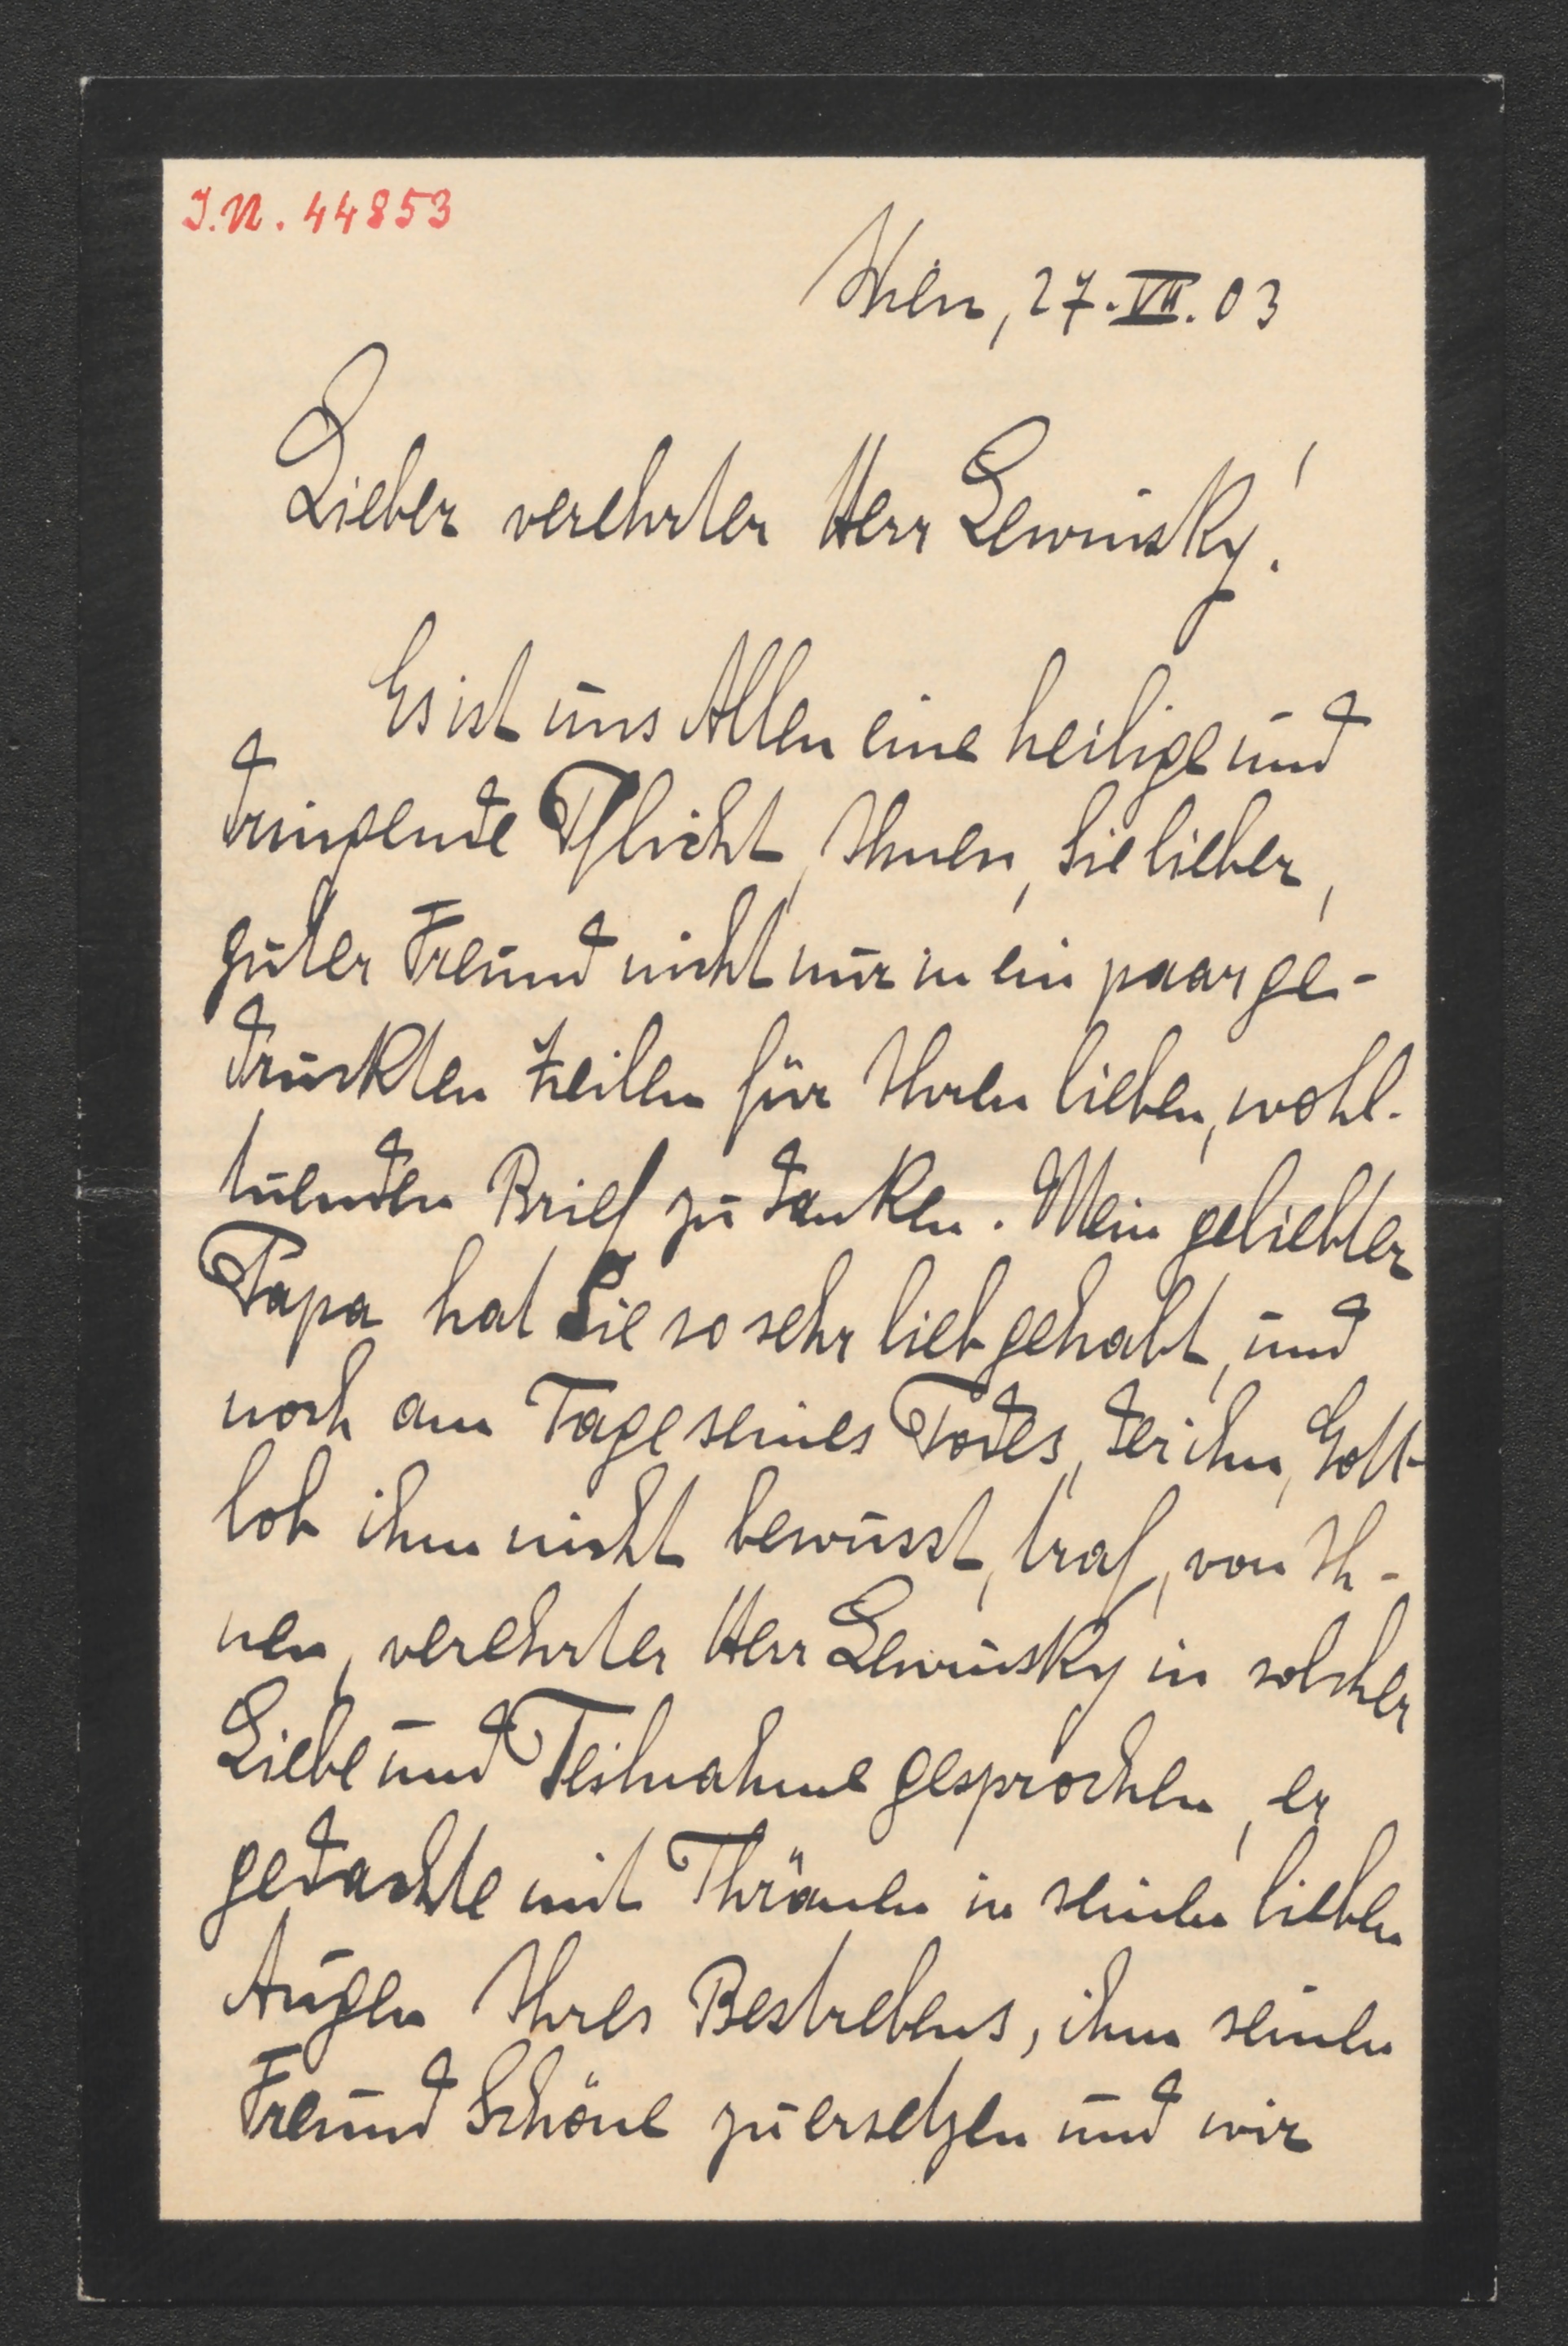 I.N. 44853
Wien, 27. VII. 03
Lieber verehrter Herr Lewinsky!
Es ist uns Allen eine heilige und
dringende Pflicht, Ihnen, Sie lieber,
guter Freund nicht nur in ein paar ge-
druckten Zeilen für Ihren lieben, wohl-
tuenden Brief zu danken. Mein geliebter
Papa hat Sie so sehr lieb gehabt, und
noch am Tage seines Todes, der ihn, Gott-
lob ihm nicht bewusst, traf, von Ih-
nen, verehrter Herr Lewinsky in solcher
Liebe und Teilnahme gesprochen, er
gedachte mit Thränen in seinen lieben
Augen Ihres Bestrebens, ihm seinen
Freund Schöne zu ersetzen und wir